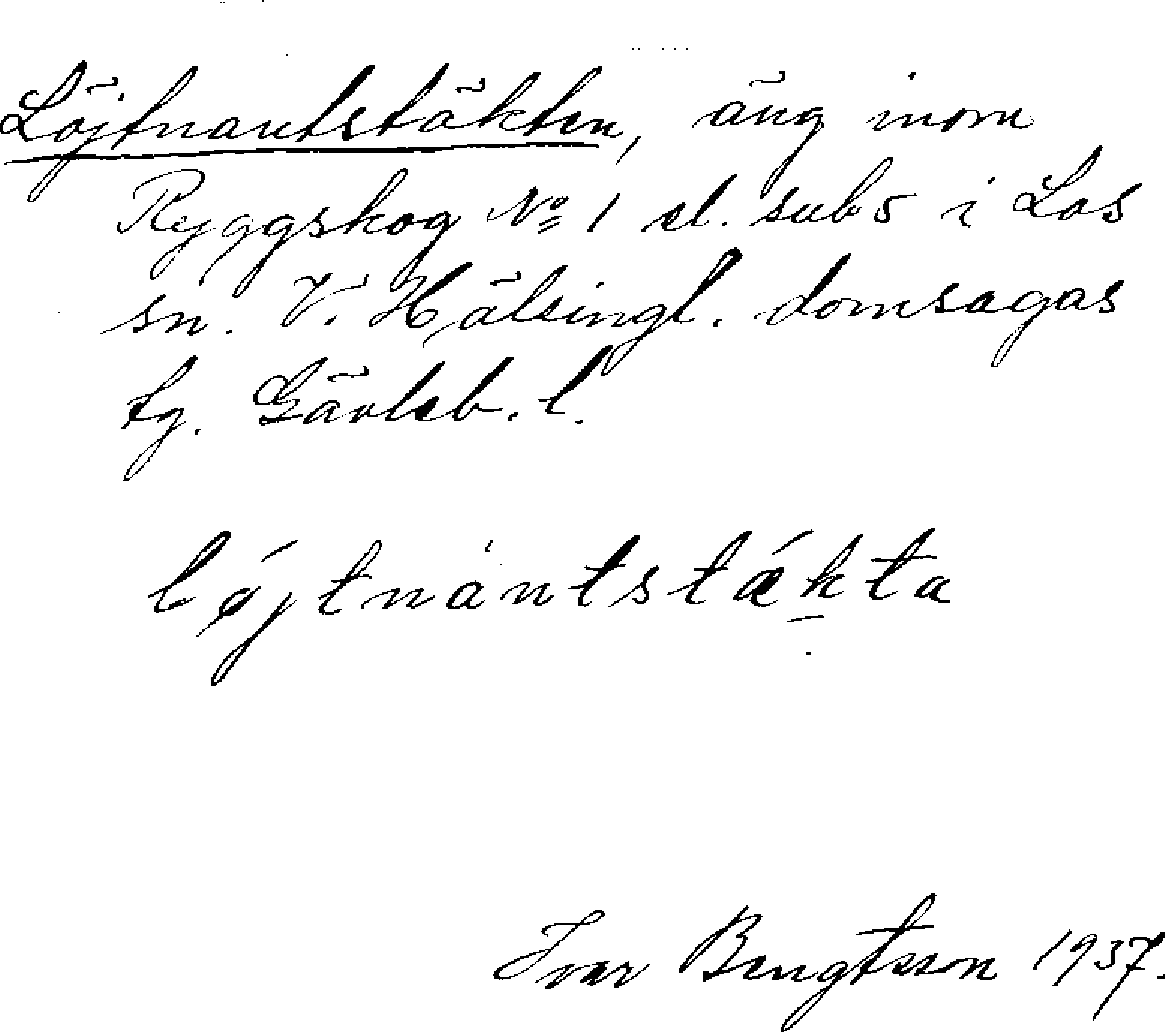 Löjtnantstäkten, äng inom
Ryggskog No 1 el. sub 5 i Los
sn. V. Hälsingl. domsagas
tg. Gävleb. l.
löjtnàntstǽkta
Ivar Bengtsson 1937.